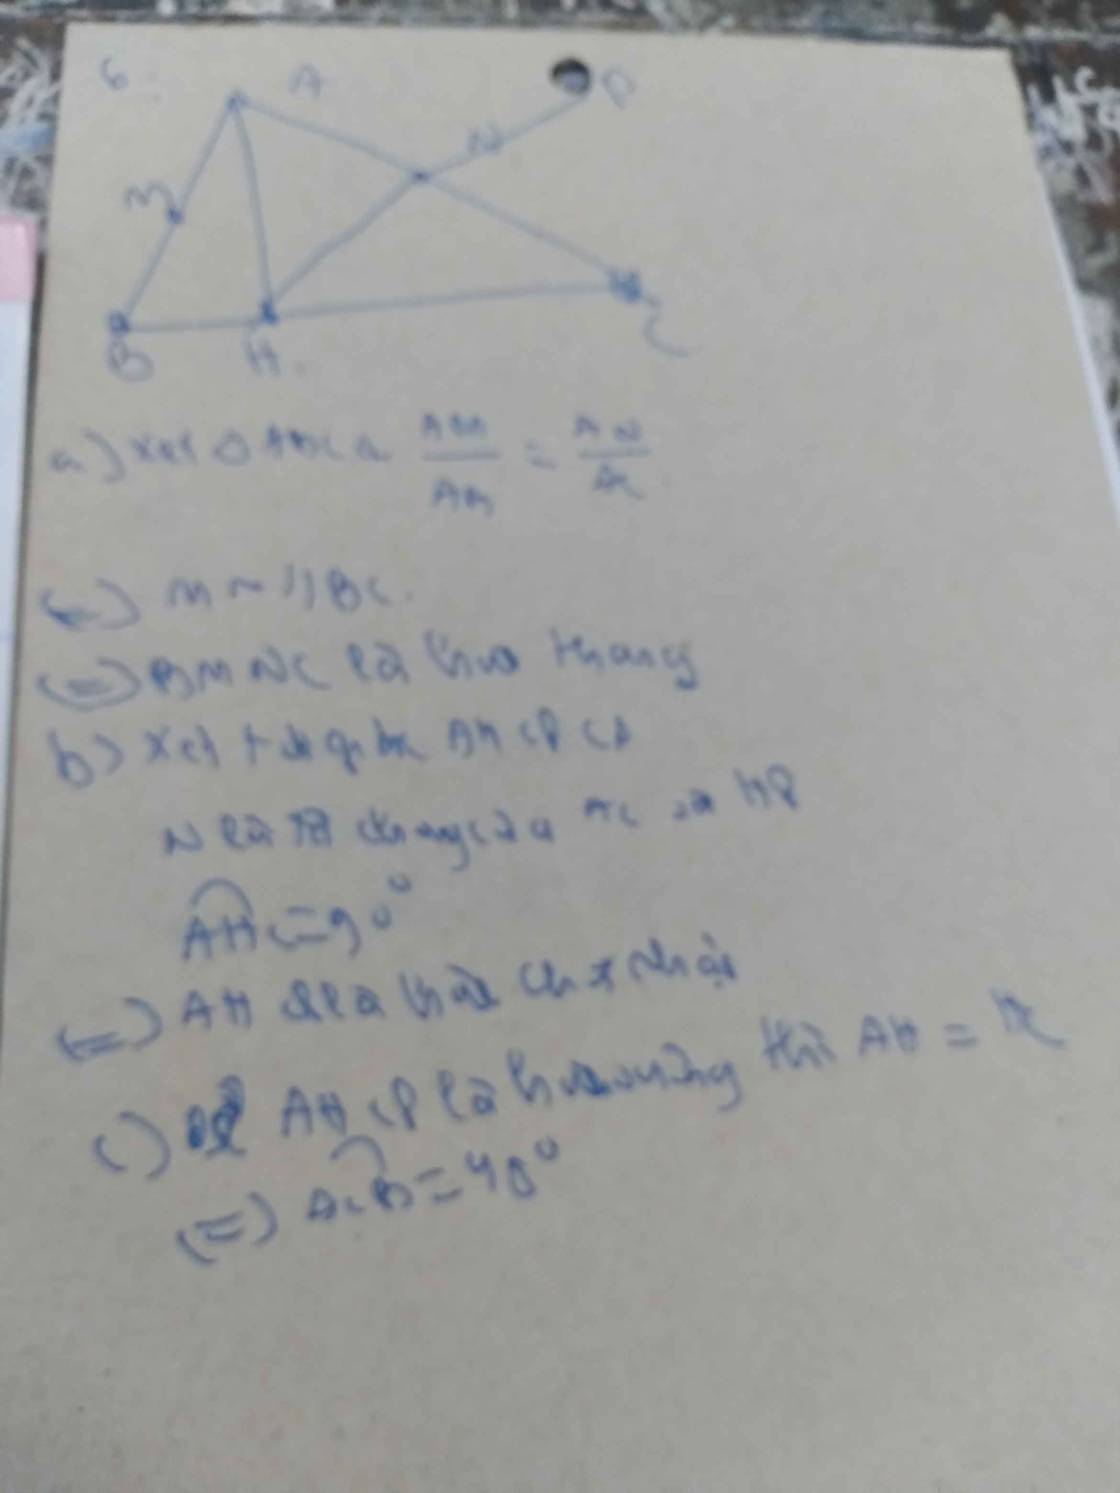 6
A
P
N
M
B
H
C
a) xét △ ABC có AM/AB = AN/AC
(=) MN // BC.
(=) BMNC là hình thang
b) xét tứ giác AHCP có
N là trung của AC và HP
AHC = 90°
(=) AH là hình chữ nhật
c) Để AHCP là hình vuông thì AH = HC
(=) ACB = 45°